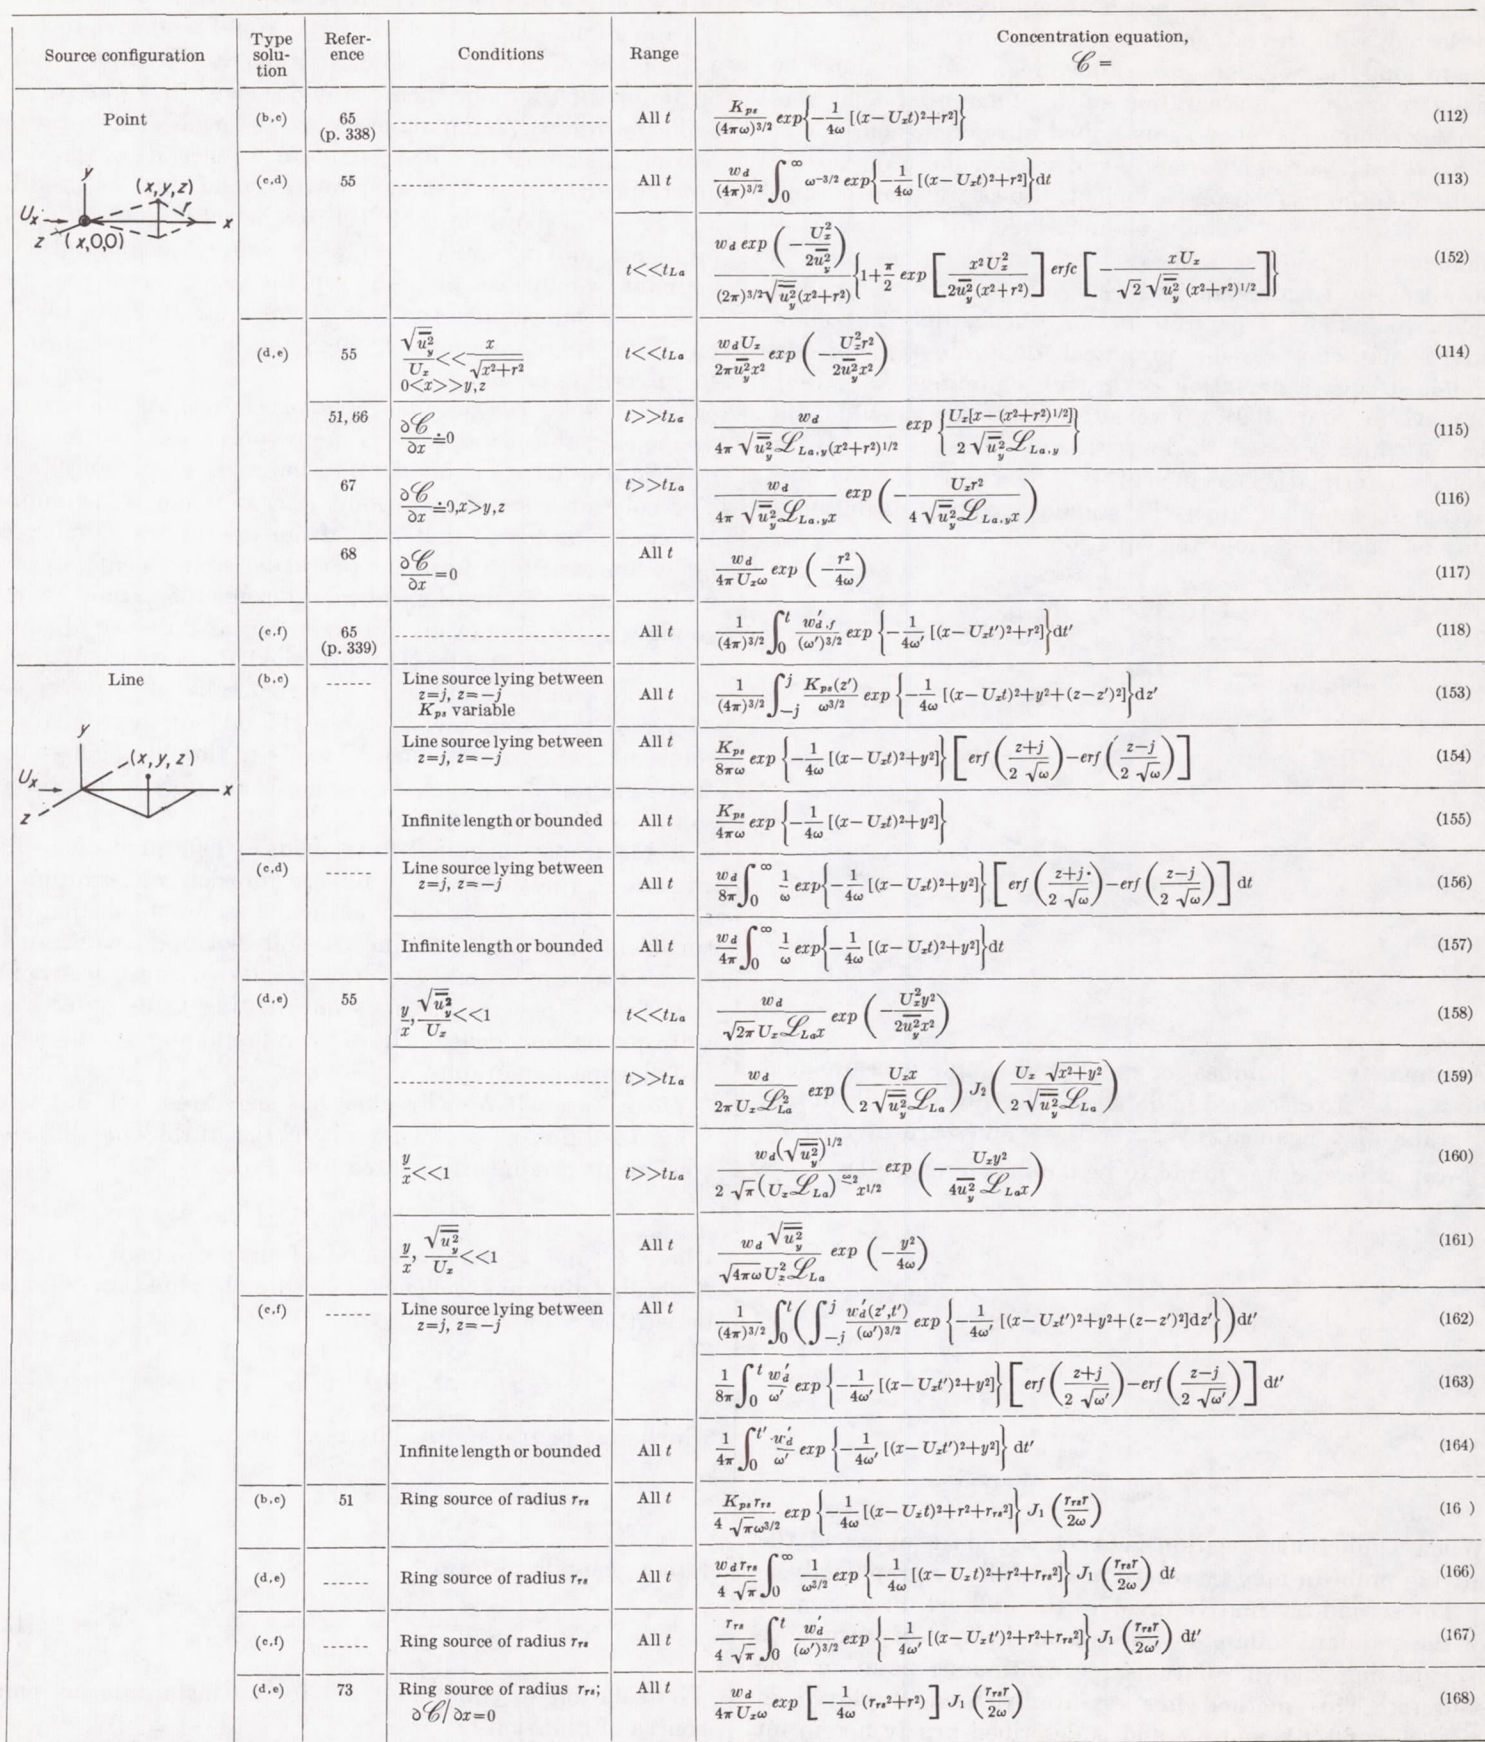 Source configuration | Type solu-tion | Refer-ence | Conditions | Range | Concentration equation, 𝒞 =
Point | (b,c) | 65 (p. 338) | ---------- | All t | \frac{K_{ps}}{(4πω)^{3/2}} exp{-\frac{1}{4ω} [(x-U_xt)²+r²]} (112)
y
(x,y,z)
r
U_x
x
z
(x,0,0)
(c,d) | 55 | ---------- | All t | \frac{w_d}{(4π)^{3/2}} ∫_0^∞ ω^{-3/2} exp{-\frac{1}{4ω} [(x-U_xt)²+r²]}dt (113)
t<<t_{La} | \frac{w_d exp(-\frac{U_x^2}{2\overline{u_y^2}})}{(2π)^{3/2}\sqrt{\overline{u_y^2}}(x²+r²)} {1+\frac{π}{2} exp[\frac{x²U_x^2}{2\overline{u_y^2}(x²+r²)}] erfc[-\frac{xU_x}{\sqrt{2}\sqrt{\overline{u_y^2}}(x²+r²)^{1/2}}]} (152)
(d,e) | 55 | \frac{\sqrt{\overline{u_y^2}}}{U_x}<<\frac{x}{\sqrt{x²+r²}} 0<x>>y,z | t<<t_{La} | \frac{w_dU_x}{2π\overline{u_y^2}x²} exp(-\frac{U_x^2r²}{2\overline{u_y^2}x²}) (114)
51, 66 | \frac{∂𝒞}{∂x}≐0 | t>>t_{La} | \frac{w_d}{4π\sqrt{\overline{u_y^2}}ℒ_{La,y}(x²+r²)^{1/2}} exp{\frac{U_x[x-(x²+r²)^{1/2}]}{2\sqrt{\overline{u_y^2}}ℒ_{La,y}}} (115)
67 | \frac{∂𝒞}{∂x}≐0,x>y,z | t>>t_{La} | \frac{w_d}{4π\sqrt{\overline{u_y^2}}ℒ_{La,y}x} exp(-\frac{U_xr²}{4\sqrt{\overline{u_y^2}}ℒ_{La,y}x}) (116)
68 | \frac{∂𝒞}{∂x}=0 | All t | \frac{w_d}{4πU_xω} exp(-\frac{r²}{4ω}) (117)
(c,f) | 65 (p. 339) | ---------- | All t | \frac{1}{(4π)^{3/2}} ∫_0^t \frac{w'_{d,f}}{(ω')^{3/2}} exp{-\frac{1}{4ω'} [(x-U_xt')²+r²]}dt' (118)
Line | (b,c) | ------ | Line source lying between z=j, z=-j K_{ps} variable | All t | \frac{1}{(4π)^{3/2}} ∫_{-j}^j \frac{K_{ps}(z')}{ω^{3/2}} exp{-\frac{1}{4ω} [(x-U_xt)²+y²+(z-z')²]}dz' (153)
y
(x, y, z)
U_x
x
z
Line source lying between z=j, z=-j | All t | \frac{K_{ps}}{8πω} exp{-\frac{1}{4ω} [(x-U_xt)²+y²]} [erf(\frac{z+j}{2\sqrt{ω}})-erf(\frac{z-j}{2\sqrt{ω}})] (154)
Infinite length or bounded | All t | \frac{K_{ps}}{4πω} exp{-\frac{1}{4ω} [(x-U_xt)²+y²]} (155)
(c,d) | ------ | Line source lying between z=j, z=-j | All t | \frac{w_d}{8π} ∫_0^∞ \frac{1}{ω} exp{-\frac{1}{4ω} [(x-U_xt)²+y²]} [erf(\frac{z+j}{2\sqrt{ω}})-erf(\frac{z-j}{2\sqrt{ω}})] dt (156)
Infinite length or bounded | All t | \frac{w_d}{4π} ∫_0^∞ \frac{1}{ω} exp{-\frac{1}{4ω} [(x-U_xt)²+y²]}dt (157)
(d,e) | 55 | \frac{y}{x}, \frac{\sqrt{\overline{u_y^2}}}{U_x}<<1 | t<<t_{La} | \frac{w_d}{\sqrt{2π}U_xℒ_{La}x} exp(-\frac{U_x^2y²}{2\overline{u_y^2}x²}) (158)
---------- | t>>t_{La} | \frac{w_d}{2πU_xℒ_{La}^2} exp(\frac{U_xx}{2\sqrt{\overline{u_y^2}}ℒ_{La}}) J_2(\frac{U_x\sqrt{x²+y²}}{2\sqrt{\overline{u_y^2}}ℒ_{La}}) (159)
\frac{y}{x}<<1 | t>>t_{La} | \frac{w_d(\sqrt{\overline{u_y^2}})^{1/2}}{2\sqrt{π}(U_xℒ_{La}) x^{1/2}} exp(-\frac{U_xy²}{4\overline{u_y^2}ℒ_{La}x}) (160)
\frac{y}{x}, \frac{\sqrt{\overline{u_y^2}}}{U_x}<<1 | All t | \frac{w_d\sqrt{\overline{u_y^2}}}{\sqrt{4πω}U_x^2ℒ_{La}} exp(-\frac{y²}{4ω}) (161)
(c,f) | ------ | Line source lying between z=j, z=-j | All t | \frac{1}{(4π)^{3/2}} ∫_0^t (∫_{-j}^j \frac{w'_d(z',t')}{(ω')^{3/2}} exp{-\frac{1}{4ω'} [(x-U_xt')²+y²+(z-z')²]dz'})dt' (162)
\frac{1}{8π} ∫_0^t \frac{w'_d}{ω'} exp{-\frac{1}{4ω'} [(x-U_xt')²+y²]} [erf(\frac{z+j}{2\sqrt{ω'}})-erf(\frac{z-j}{2\sqrt{ω'}})] dt' (163)
Infinite length or bounded | All t | \frac{1}{4π} ∫_0^{t'} \frac{w'_d}{ω'} exp{-\frac{1}{4ω'} [(x-U_xt')²+y²]} dt' (164)
(b,c) | 51 | Ring source of radius r_{rs} | All t | \frac{K_{ps}r_{rs}}{4\sqrt{π}ω^{3/2}} exp{-\frac{1}{4ω} [(x-U_xt)²+r²+r_{rs}²]} J_1(\frac{r_{rs}r}{2ω}) (16 )
(d,e) | ------ | Ring source of radius r_{rs} | All t | \frac{w_dr_{rs}}{4\sqrt{π}} ∫_0^∞ \frac{1}{ω^{3/2}} exp{-\frac{1}{4ω} [(x-U_xt)²+r²+r_{rs}²]} J_1(\frac{r_{rs}r}{2ω}) dt (166)
(c,f) | ------ | Ring source of radius r_{rs} | All t | \frac{r_{rs}}{4\sqrt{π}} ∫_0^t \frac{w'_d}{(ω')^{3/2}} exp{-\frac{1}{4ω'} [(x-U_xt')²+r²+r_{rs}²]} J_1(\frac{r_{rs}r}{2ω'}) dt' (167)
(d,e) | 73 | Ring source of radius r_{rs}; ∂𝒞/∂x=0 | All t | \frac{w_d}{4πU_xω} exp[-\frac{1}{4ω} (r_{rs}²+r²)] J_1(\frac{r_{rs}r}{2ω}) (168)